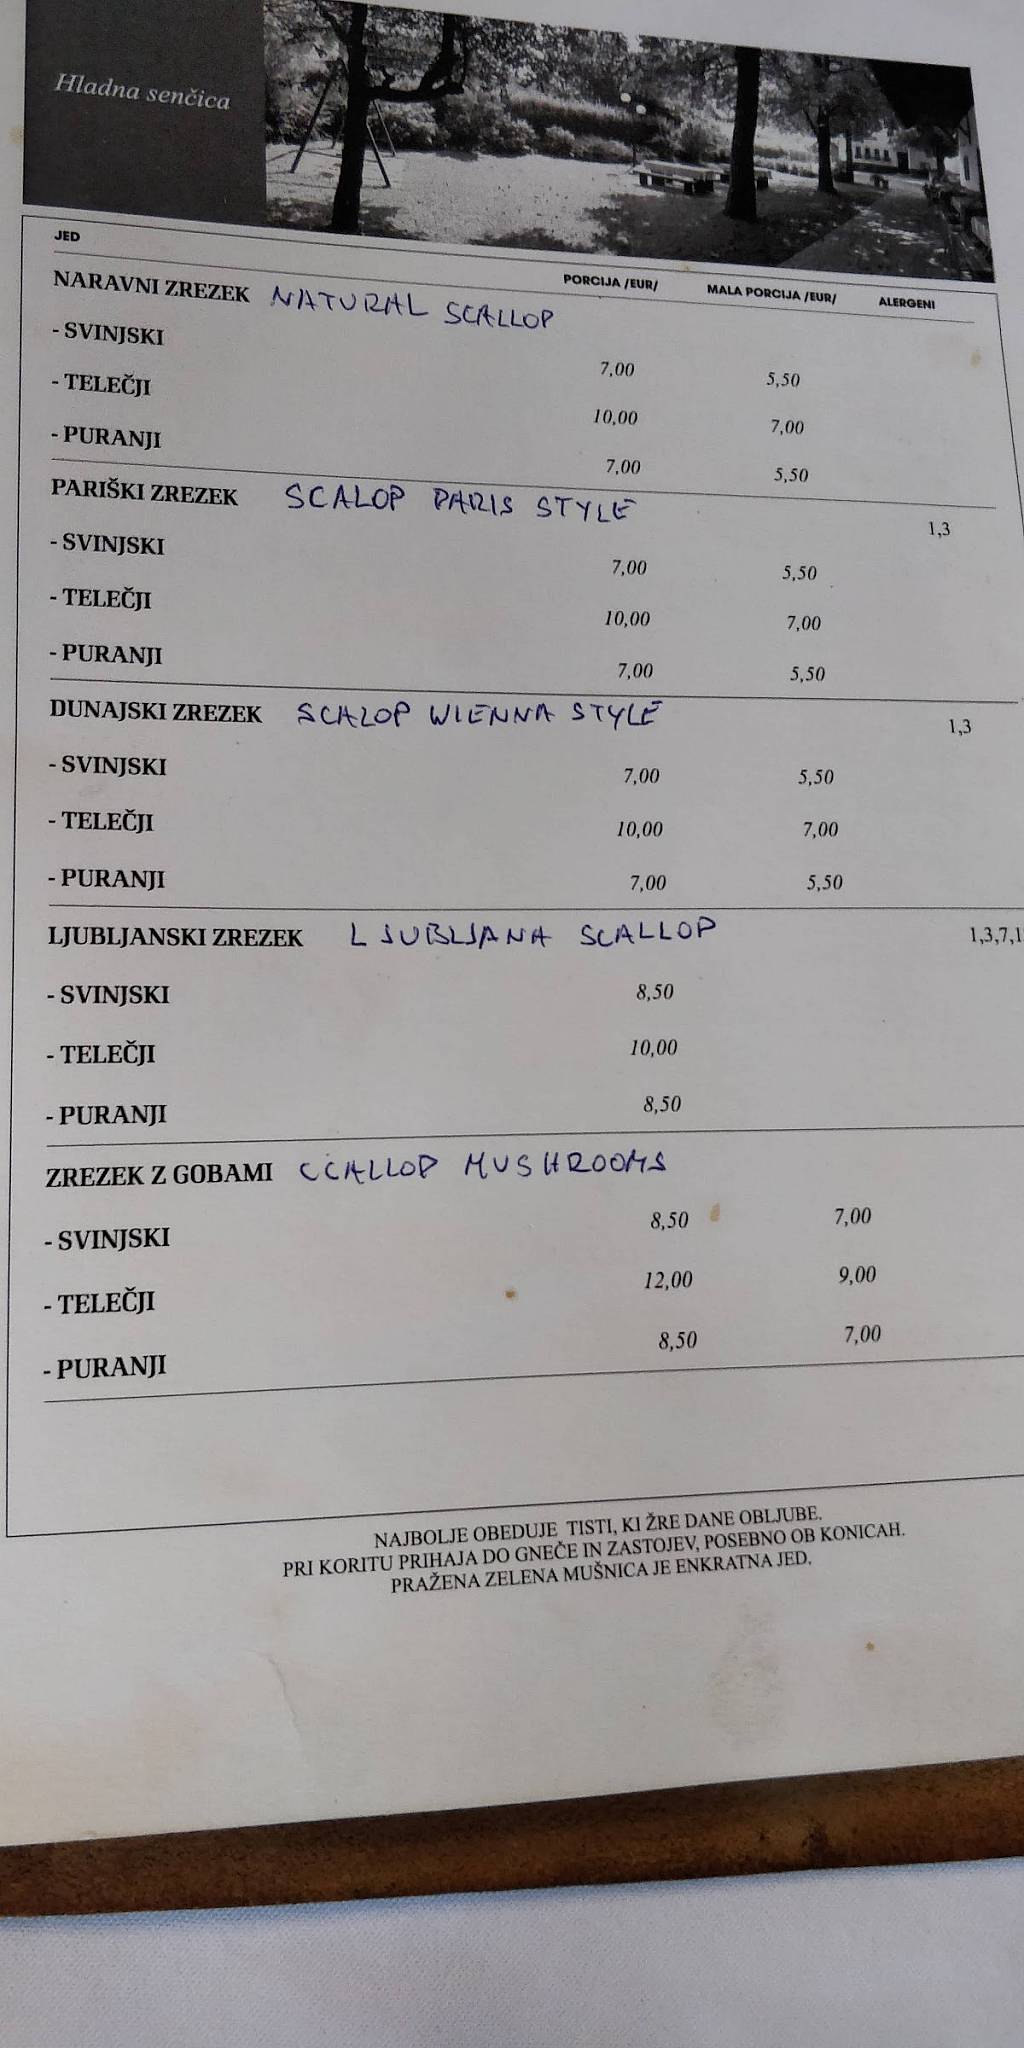 Hladna senčica
JED PORCIJA /EUR/ MALA PORCIJA /EUR/ ALERGENI
NARAVNI ZREZEK NATURAL SCALLOP
- SVINJSKI 7,00 5,50
- TELEČJI 10,00 7,00
- PURANJI 7,00 5,50
PARIŠKI ZREZEK SCALOP PARIS STYLE 1,3
- SVINJSKI 7,00 5,50
- TELEČJI 10,00 7,00
- PURANJI 7,00 5,50
DUNAJSKI ZREZEK SCALOP WIENNA STYLE 1,3
- SVINJSKI 7,00 5,50
- TELEČJI 10,00 7,00
- PURANJI 7,00 5,50
LJUBLJANSKI ZREZEK LJUBLJANA SCALLOP 1,3,7,1
- SVINJSKI 8,50
- TELEČJI 10,00
- PURANJI 8,50
ZREZEK Z GOBAMI SCALLOP MUSHROOMS
- SVINJSKI 8,50 7,00
- TELEČJI 12,00 9,00
- PURANJI 8,50 7,00
NAJBOLJE OBEDUJE TISTI, KI ŽRE DANE OBLJUBE.
PRI KORITU PRIHAJA DO GNEČE IN ZASTOJEV, POSEBNO OB KONICAH.
PRAŽENA ZELENA MUŠNICA JE ENKRATNA JED.